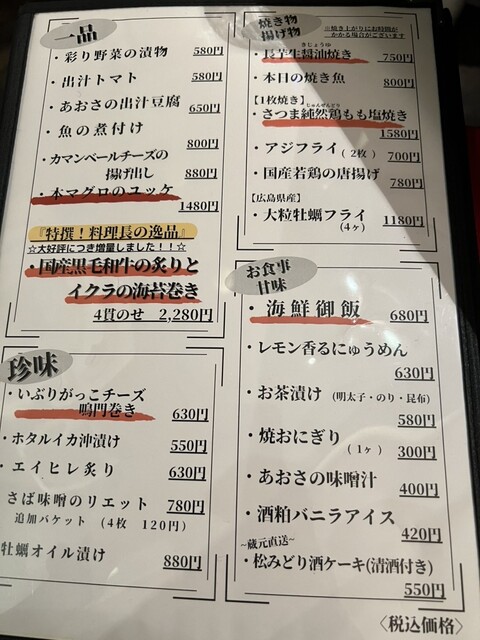 一品
・彩り野菜の漬物 580円
・出汁トマト 580円
・あおさの出汁豆腐 650円
・魚の煮付け
800円
・カマンベールチーズの
揚げ出し 880円
・本マグロのユッケ
1480円
『特撰！料理長の逸品』
☆大好評につき増量しました！！☆
・国産黒毛和牛の炙りと
イクラの海苔巻き
4貫のせ 2,280円
珍味
・いぶりがっこチーズ
鳴門巻き 630円
・ホタルイカ沖漬け 550円
・エイヒレ炙り 630円
さば味噌のリエット 780円
追加バケット (4枚 120円)
牡蠣オイル漬け 880円
焼き物
揚げ物
※焼き上がりにお時間が
かかる場合がございます
きじょうゆ
・長芋生醤油焼き 750円
・本日の焼き魚 800円
【1枚焼き】
じゅんぜんどり
・さつま純然鶏もも塩焼き
1580円
・アジフライ (2枚) 700円
・国産若鶏の唐揚げ 780円
【広島県産】
・大粒牡蠣フライ 1180円
(4ヶ)
お食事
甘味
・海鮮御飯 680円
・レモン香るにゅうめん
630円
・お茶漬け (明太子・のり・昆布)
580円
・焼おにぎり (1ヶ) 300円
・あおさの味噌汁
400円
・酒粕バニラアイス
420円
~蔵元直送~
・松みどり酒ケーキ(清酒付き)
550円
〈税込価格〉